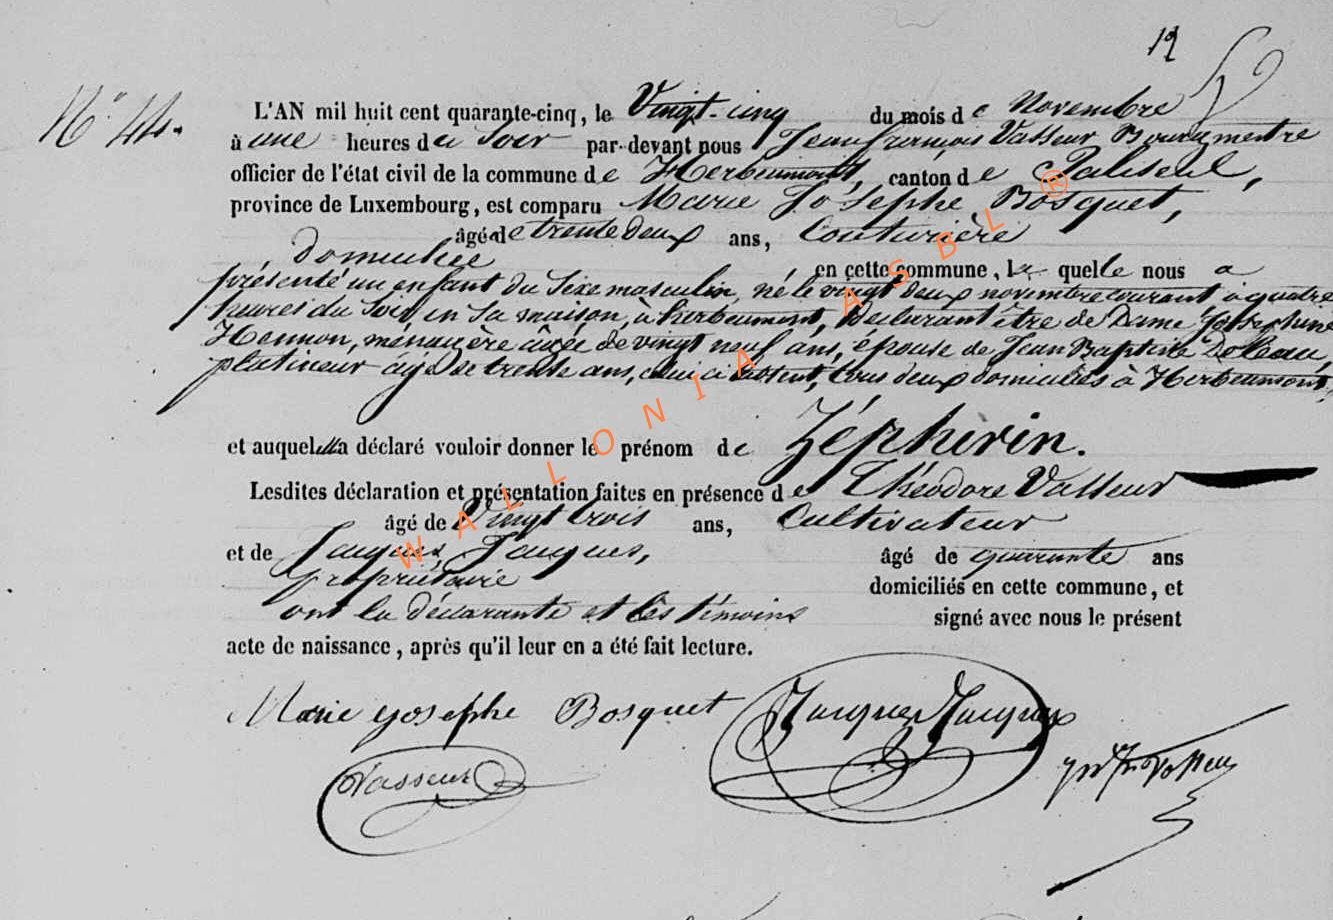 12
N° 44.
L'AN mil huit cent quarante-cinq, le Vingt-cinq du mois de Novembre
à une heures du soir par-devant nous Jean françois Vasseur Bourgmestre
officier de l'état civil de la commune de Herbeumont, canton de Paliseul,
province de Luxembourg, est comparu Marie Josephe Bosquet,
âgé de trente deux ans, Couturière
domiciliée en cette commune, la quelle nous a
présenté un enfant du sexe masculin, né le vingt deux novembre courant à quatre
heures du soir, en sa maison, à herbeumont, déclarant être de Dame Josephine
Hennon, ménagère âgée de vingt neuf ans, épouse de Jean Baptiste
platineur âgé de trente ans, celui ci absent, tous deux domiciliés à Herbeumont,
et auquel elle a déclaré vouloir donner le prénom de Zéphirin.
Lesdites déclaration et présentation faites en présence de Théodore Vasseur
âgé de Vingt trois ans, Cultivateur
et de Jacques Jacques, âgé de quarante ans
propriétaire domiciliés en cette commune, et
ont la déclarante et les témoins signé avec nous le présent
acte de naissance, après qu'il leur en a été fait lecture.
Marie Josephe Bosquet Jacques Jacques
Vasseur Vasseur
WALLONIA ASBL ®